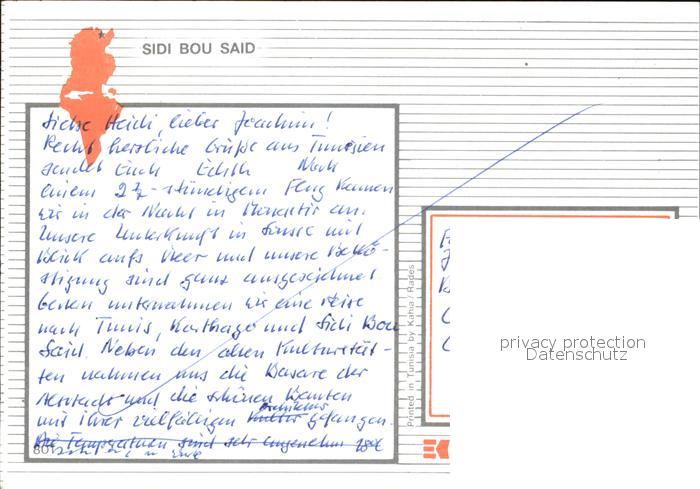 SIDI BOU SAID
Liebe Heidi, lieber Joachim!
Recht herzliche Grüße aus Tunesien
sendet Euch Edith Nach
einem 2½-stündigem Flug kamen
wir in der Nacht in Monastir an.
Unsere Unterkunft in Sousse mit
Blick aufs Meer und unsere Bekö-
stigung sind ganz ausgezeichnet
Gestern unternahmen wir eine Reise
nach Tunis, Karthago und Sidi Bou
Said. Neben den alten Kulturstät-
ten nahmen uns die Basare der
Altstadt und die schönen Bauten
mit ihrer vielfältigen Architektur gefangen.
Die Temperaturen sind sehr angenehm 18°
801
Printed in Tunisia by Kahia / Rades
privacy protection
Datenschutz